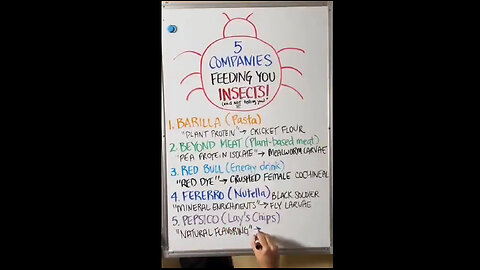 5
COMPANIES
FEEDING YOU
INSECTS!
(and NOT telling you!)
1. BARILLA (Pasta)
"PLANT PROTEIN" → CRICKET FLOUR
2. BEYOND MEAT (Plant-based meat)
"PEA PROTEIN ISOLATE" → MEALWORM LARVAE
3. RED BULL (Energy drink)
"RED DYE" → CRUSHED FEMALE COCHINEAL
4. FERERRO (Nutella) BLACK SOLDIER
"MINERAL ENRICHMENTS" → FLY LARVAE
5. PEPSICO (Lay's Chips)
"NATURAL FLAVORING" →